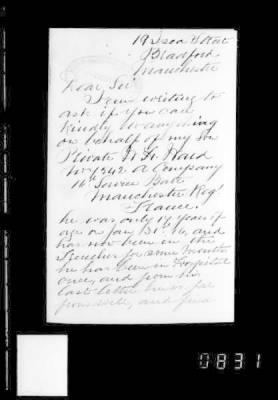 19
Bradford
Manchester
Dear Sir
I am writing to
ask if you can
kindly do anything
on behalf of my son
Private W H
A Company
16th Service Batt
Manchester Regt
France.
he was only 17 years of
age on Jan 31st 16, and
has not been in the
Trenches for some months
he has been in Hospital
once, and from his
last letter he is far
from well, and
0831